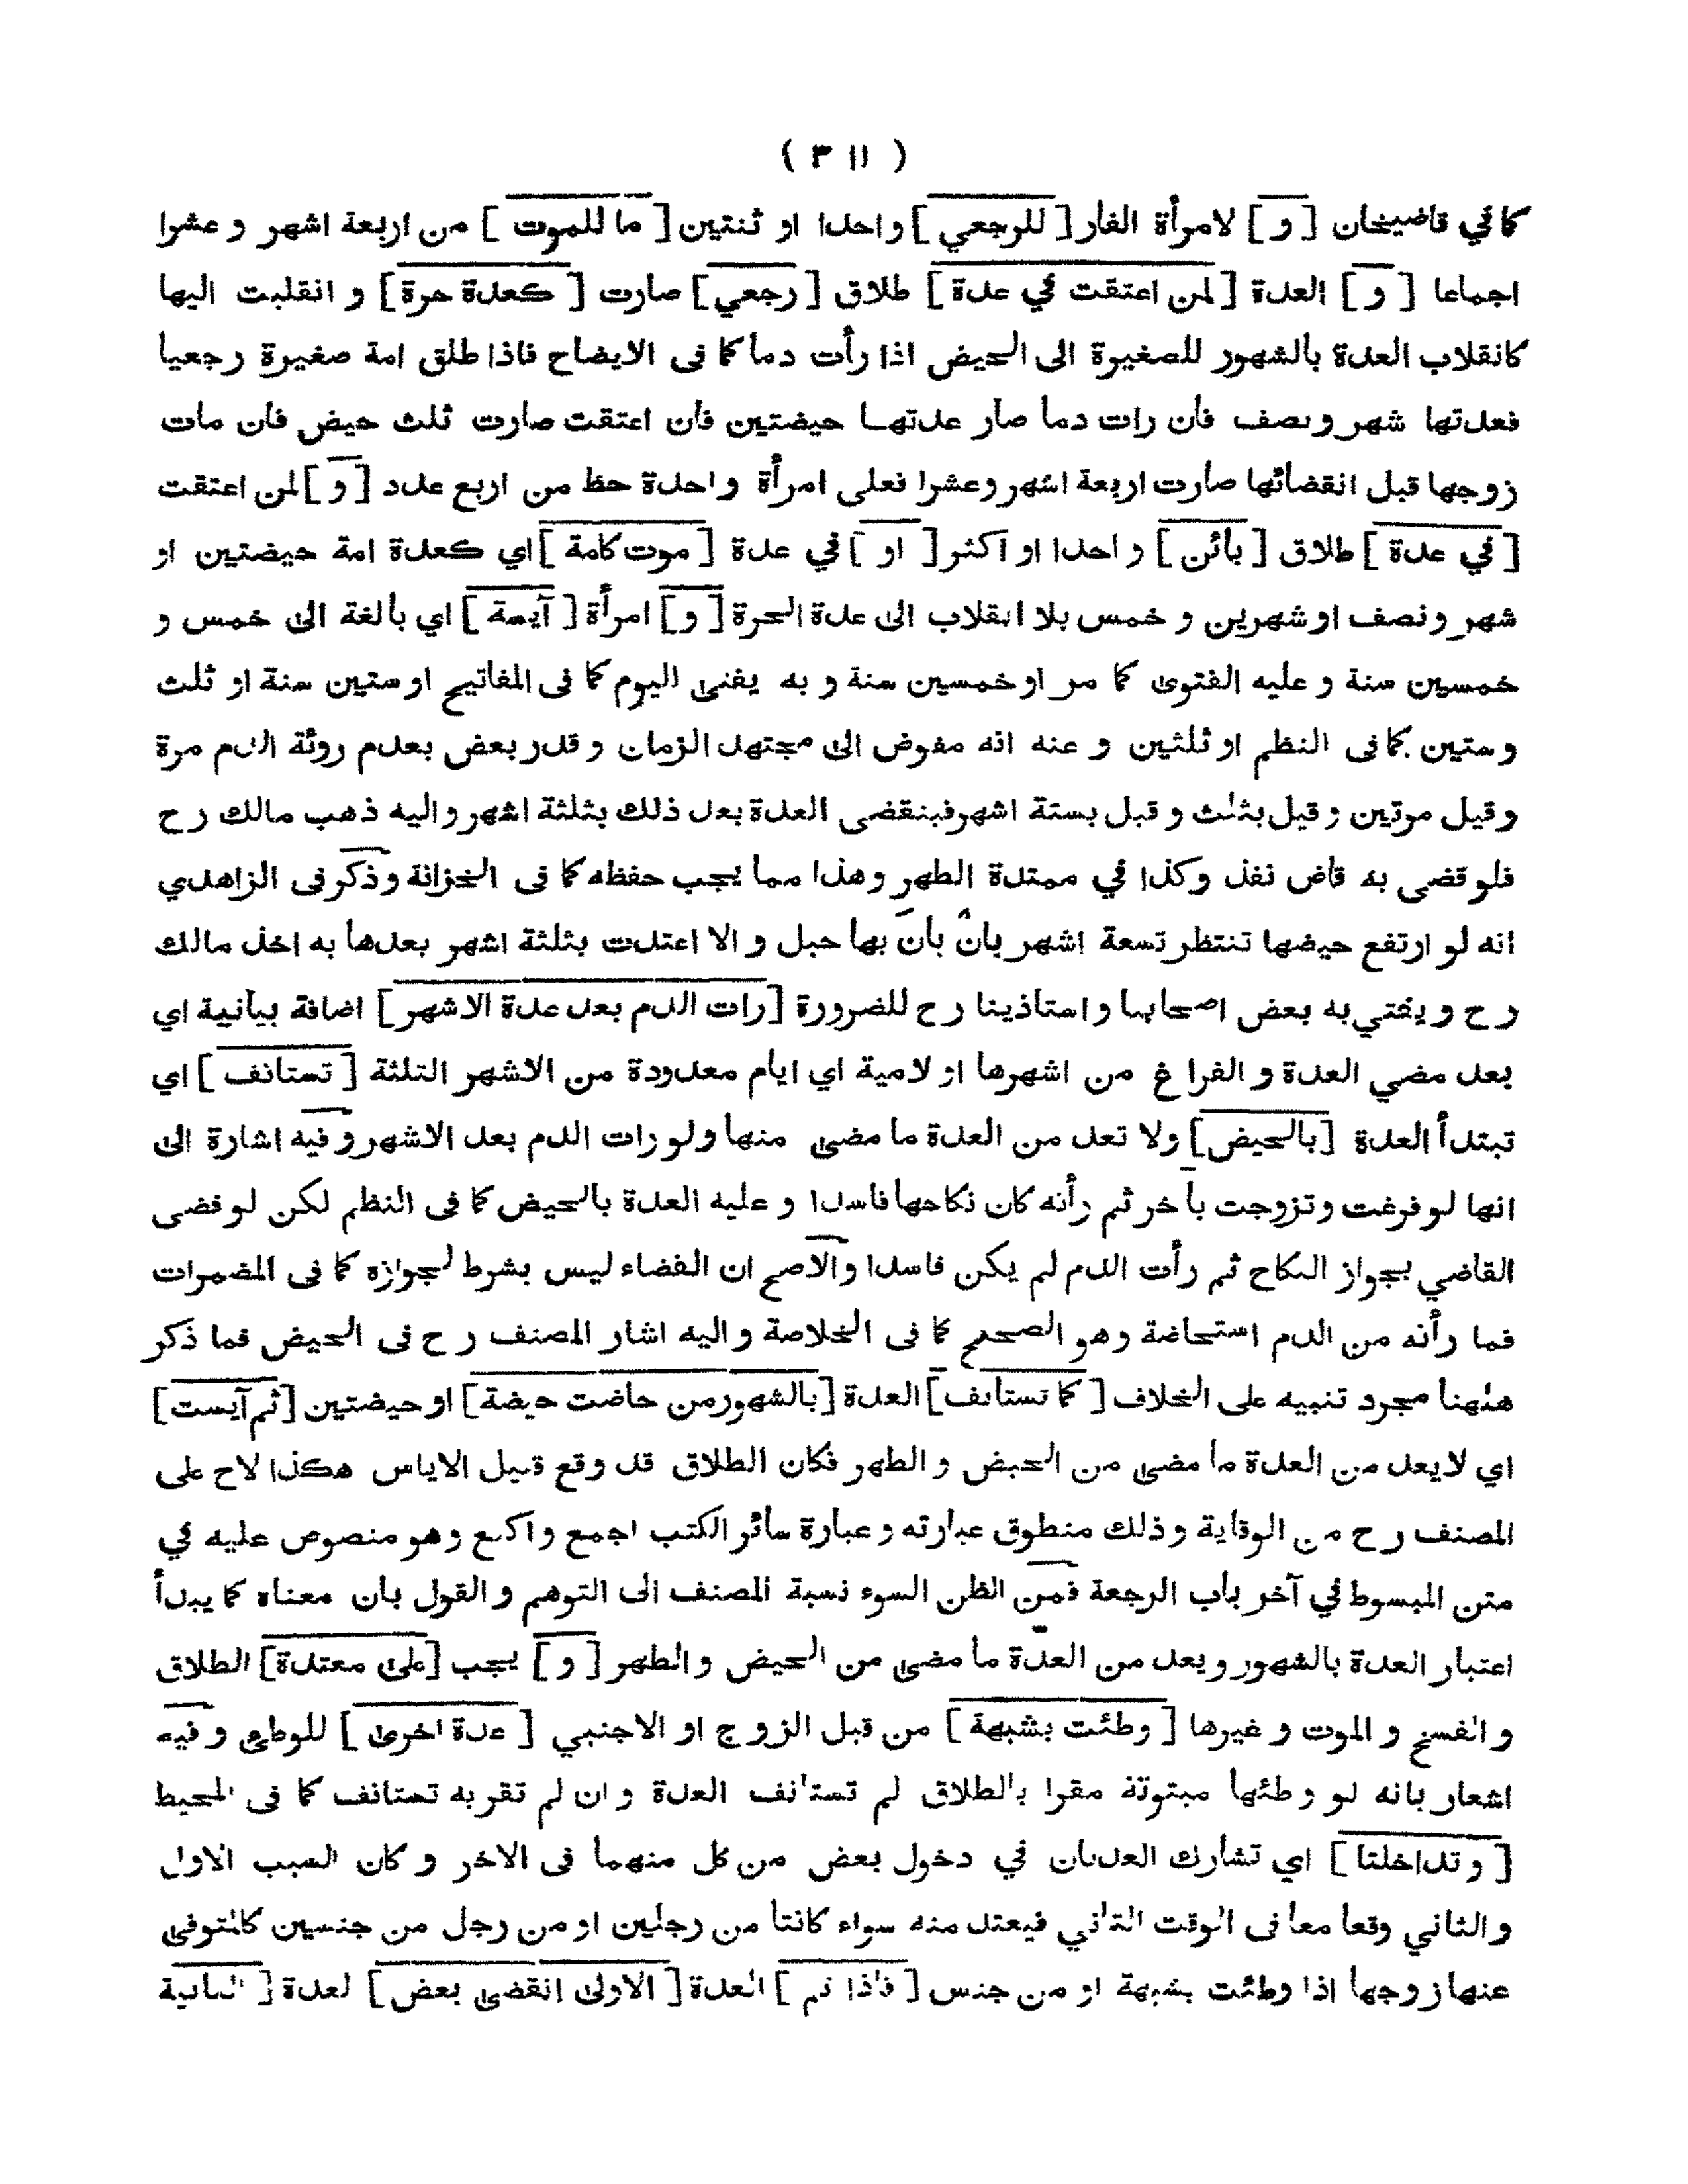 ( ٣١١ )
كما في قاضيخان [ و ] لامرأة الفار [ للرجعي ] واحدا او ثنتين [ ما للموت ] من اربعة اشهر و عشرا
اجماعا [ و ] العدة [ لمن اعتقت في عدة ] طلاق [ رجعي ] صارت [ كعدة حرة ] و انقلبت اليها
كانقلاب العدة بالشهور للصغيرة الى الحيض اذا رأت دما كما فى الايضاح فاذا طلق امة صغيرة رجعيا
فعدتها شهر و نصف فان رات دما صار عدتها حيضتين فان اعتقت صارت ثلث حيض فان مات
زوجها قبل انقضائها صارت اربعة اشهر وعشرا فعلى امرأة واحدة حظ من اربع عدد [ و ] لمن اعتقت
[ في عدة ] طلاق [ بائن ] واحدا او اكثر [ او ] في عدة [ موت كامة ] اي كعدة امة حيضتين او
شهر و نصف او شهرين و خمس بلا انقلاب الى عدة الحرة [ و ] امرأة [ آيسة ] اي بالغة الى خمس و
خمسين سنة و عليه الفتوى كما مر او خمسين سنة و به يفتى اليوم كما فى المفاتيح او ستين سنة او ثلث
و ستين كما فى النظم او ثلثين و عنه انه مفوض الى مجتهد الزمان و قدر بعض بعدم روئة الدم مرة
و قيل مرتين و قيل بثلث و قيل بستة اشهر فينقضى العدة بعد ذلك بثلثة اشهر و اليه ذهب مالك رح
فلو قضى به قاض نفذ وكذا في ممتدة الطهر وهذا مما يجب حفظه كما فى الخزانة وذكر فى الزاهدي
انه لو ارتفع حيضها تنتظر تسعة اشهر بان بان بها حبل و الا اعتدت بثلثة اشهر بعدها به اخذ مالك
رح و يفتي به بعض اصحابها و استاذينا رح للضرورة [ رات الدم بعد عدة الاشهر ] اضافة بيانية اي
بعد مضي العدة و الفراغ من اشهرها او لامية اي ايام معدودة من الاشهر الثلثة [ تستانف ] اي
تبتدأ العدة [ بالحيض ] ولا تعد من العدة ما مضى منها ولو رات الدم بعد الاشهر وفيه اشارة الى
انها لو فرغت وتزوجت بآخر ثم رأته كان نكاحها فاسدا و عليه العدة بالحيض كما فى النظم لكن لو قضى
القاضي بجواز النكاح ثم رأت الدم لم يكن فاسدا والاصح ان القضاء ليس بشرط لجوازه كما فى المضمرات
فما رأته من الدم استحاضة وهو الصحيح كما فى الخلاصة و اليه اشار المصنف رح فى الحيض فما ذكر
ههنا مجرد تنبيه على الخلاف [ كما تستانف ] العدة [ بالشهور من حاضت حيضة ] او حيضتين [ ثم آيست ]
اي لايعد من العدة ما مضى من الحيض و الطهر فكان الطلاق قد وقع قبيل الاياس هكذا لاح على
المصنف رح من الوقاية وذلك منطوق عبارته و عبارة سائر الكتب اجمع واكتع وهو منصوص عليه في
متن المبسوط في آخر باب الرجعة فمن الظن السوء نسبة المصنف الى التوهم و القول بان معناه كما يبدأ
اعتبار العدة بالشهور و يعد من العدة ما مضى من الحيض و الطهر [ و ] يجب [ على معتدة ] الطلاق
و الفسخ و الموت و غيرها [ وطئت بشبهة ] من قبل الزوج او الاجنبي [ عدة اخرى ] للوطئ و فيه
اشعار بانه لو وطئها مبتوتة مقرا بالطلاق لم تستانف العدة و ان لم تقر به تستانف كما فى المحيط
[ و تداخلتا ] اي تشارك العدتان في دخول بعض من كل منهما فى الاخر و كان السبب الاول
و الثاني وقعا معا فى الوقت الثاني فيعتد منه سواء كانتا من رجلين او من رجل من جنسين كالمتوفى
عنها زوجها اذا وطئت بشبهة او من جنس [ فاذا تم ] العدة [ الاولى انقضى بعض ] لعدة [ الثانية